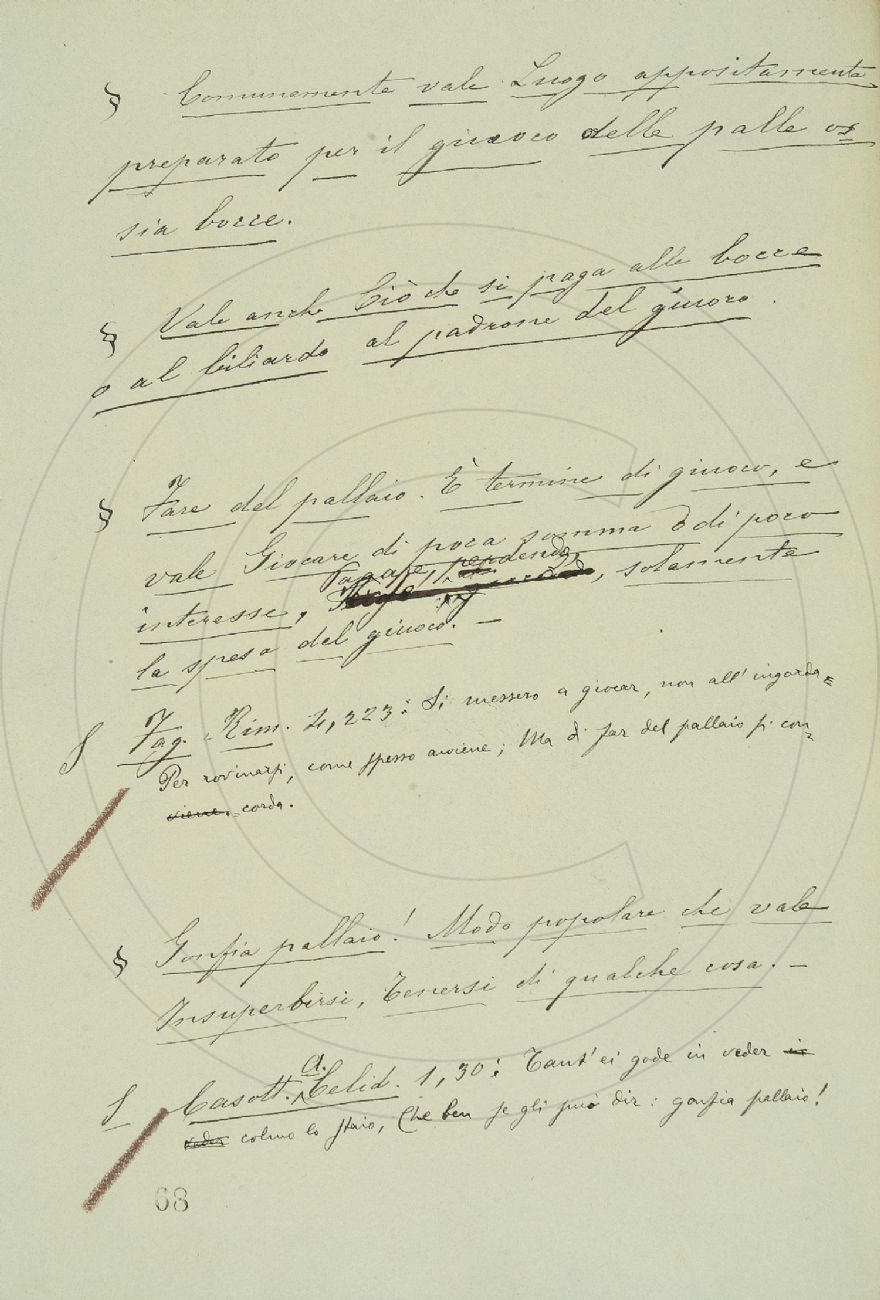 § Comunemente vale Luogo appositamente
preparato per il giuoco delle palle os
sia bocce.
§ Vale anche Ciò che si paga alle bocce
o al biliardo al padrone del giuoco.
§ Fare del pallaio. È termine di giuoco, e
vale Giocare di poca somma o di poco
Pagare, perdendo
interesse, , solamente
la spesa del giuoco. –
§ Fag. Rim. 4, 223: Si messero a giocar, non all' ingorda=
Per rovinarsi, come spesso avviene; Ma di far del pallaio si con=
viene. =corda.
§ Gonfia pallaio! Modo popolare che vale
Insuperbirsi, Tenersi di qualche cosa. –
§ Casott. a. Celid. 1, 30: Tant' ei gode in veder in
veder colmo lo staio, Che ben se gli può dir: gonfia pallaio!
68